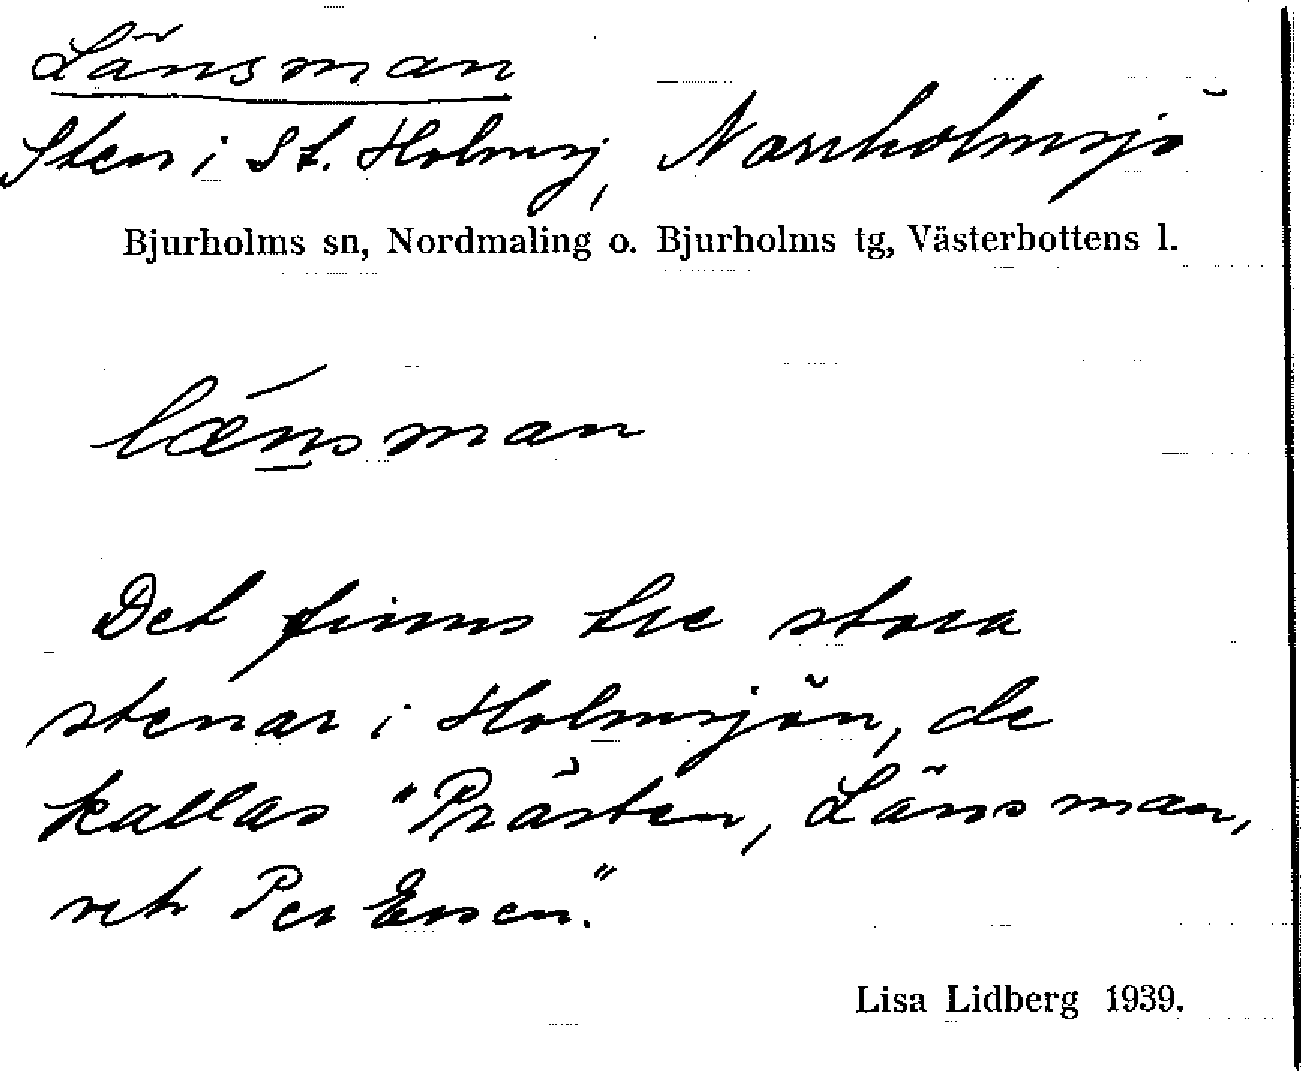 Länsman
Sten i St. Holmsj, Norrholmsjö
Bjurholms sn, Nordmaling o. Bjurholms tg, Västerbottens l.
lænsman
Det finns tre stora
stenar i Holmsjön, de
kallas "Prästen, Länsman,
och Per Ersen."
Lisa Lidberg 1939.